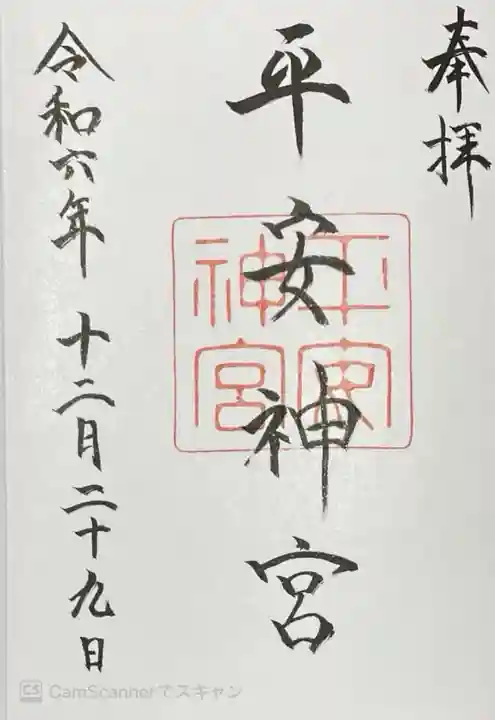 奉拝
平安神宮
平安神宮
令和六年 十二月二十九日
CS CamScannerでスキャン